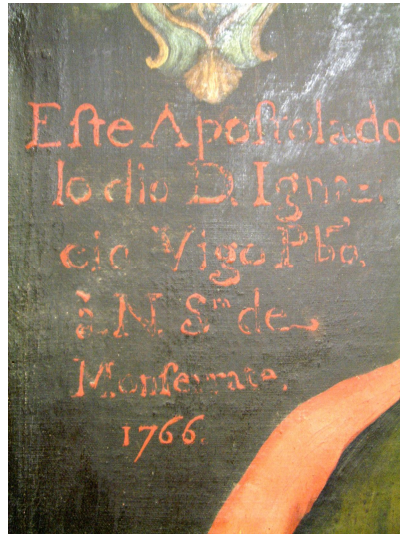 Eſte Apoſtolado
lo dio D. Igna.
cio Vigo Pbo,
à N. Sra de
Monſerrate.
1766.